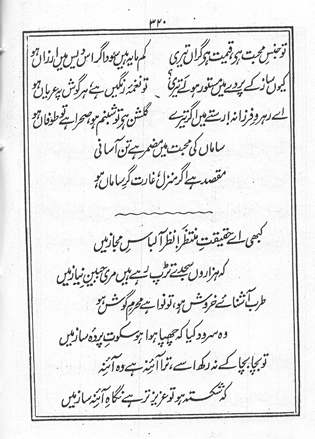 ۳۲۰
تو جنسِ محبت ہے، قیمت ہے گراں تیری کم مایہ ہیں سوداگر اس دیس میں ارزاں ہو
کیوں ساز کے پردے میں مستور ہو لَے تیری تو نغمۂ رنگیں ہے، ہر گوش پہ عریاں ہو
اے رہروِ فرزانہ! رستے میں اگر تیرے گلشن ہے تو شبنم ہو، صحرا ہے تو طوفاں ہو
ساماں کی محبت میں مضمر ہے تن آسانی
مقصد ہے اگر منزل، غارت گرِ ساماں ہو
کبھی اے حقیقتِ منتظَر! نظر آ لباسِ مجاز میں
کہ ہزاروں سجدے تڑپ رہے ہیں مری جبینِ نیاز میں
طرب آشنائے خروش ہو، تو نوا ہے محرمِ گوش ہو
وہ سرود کیا کہ چھپا ہوا ہو سکوتِ پردۂ ساز میں
تو بچا بچا کے نہ رکھ اسے، ترا آئنہ ہے وہ آئنہ
کہ شکستہ ہو تو عزیز تر ہے نگاہِ آئنہ ساز میں